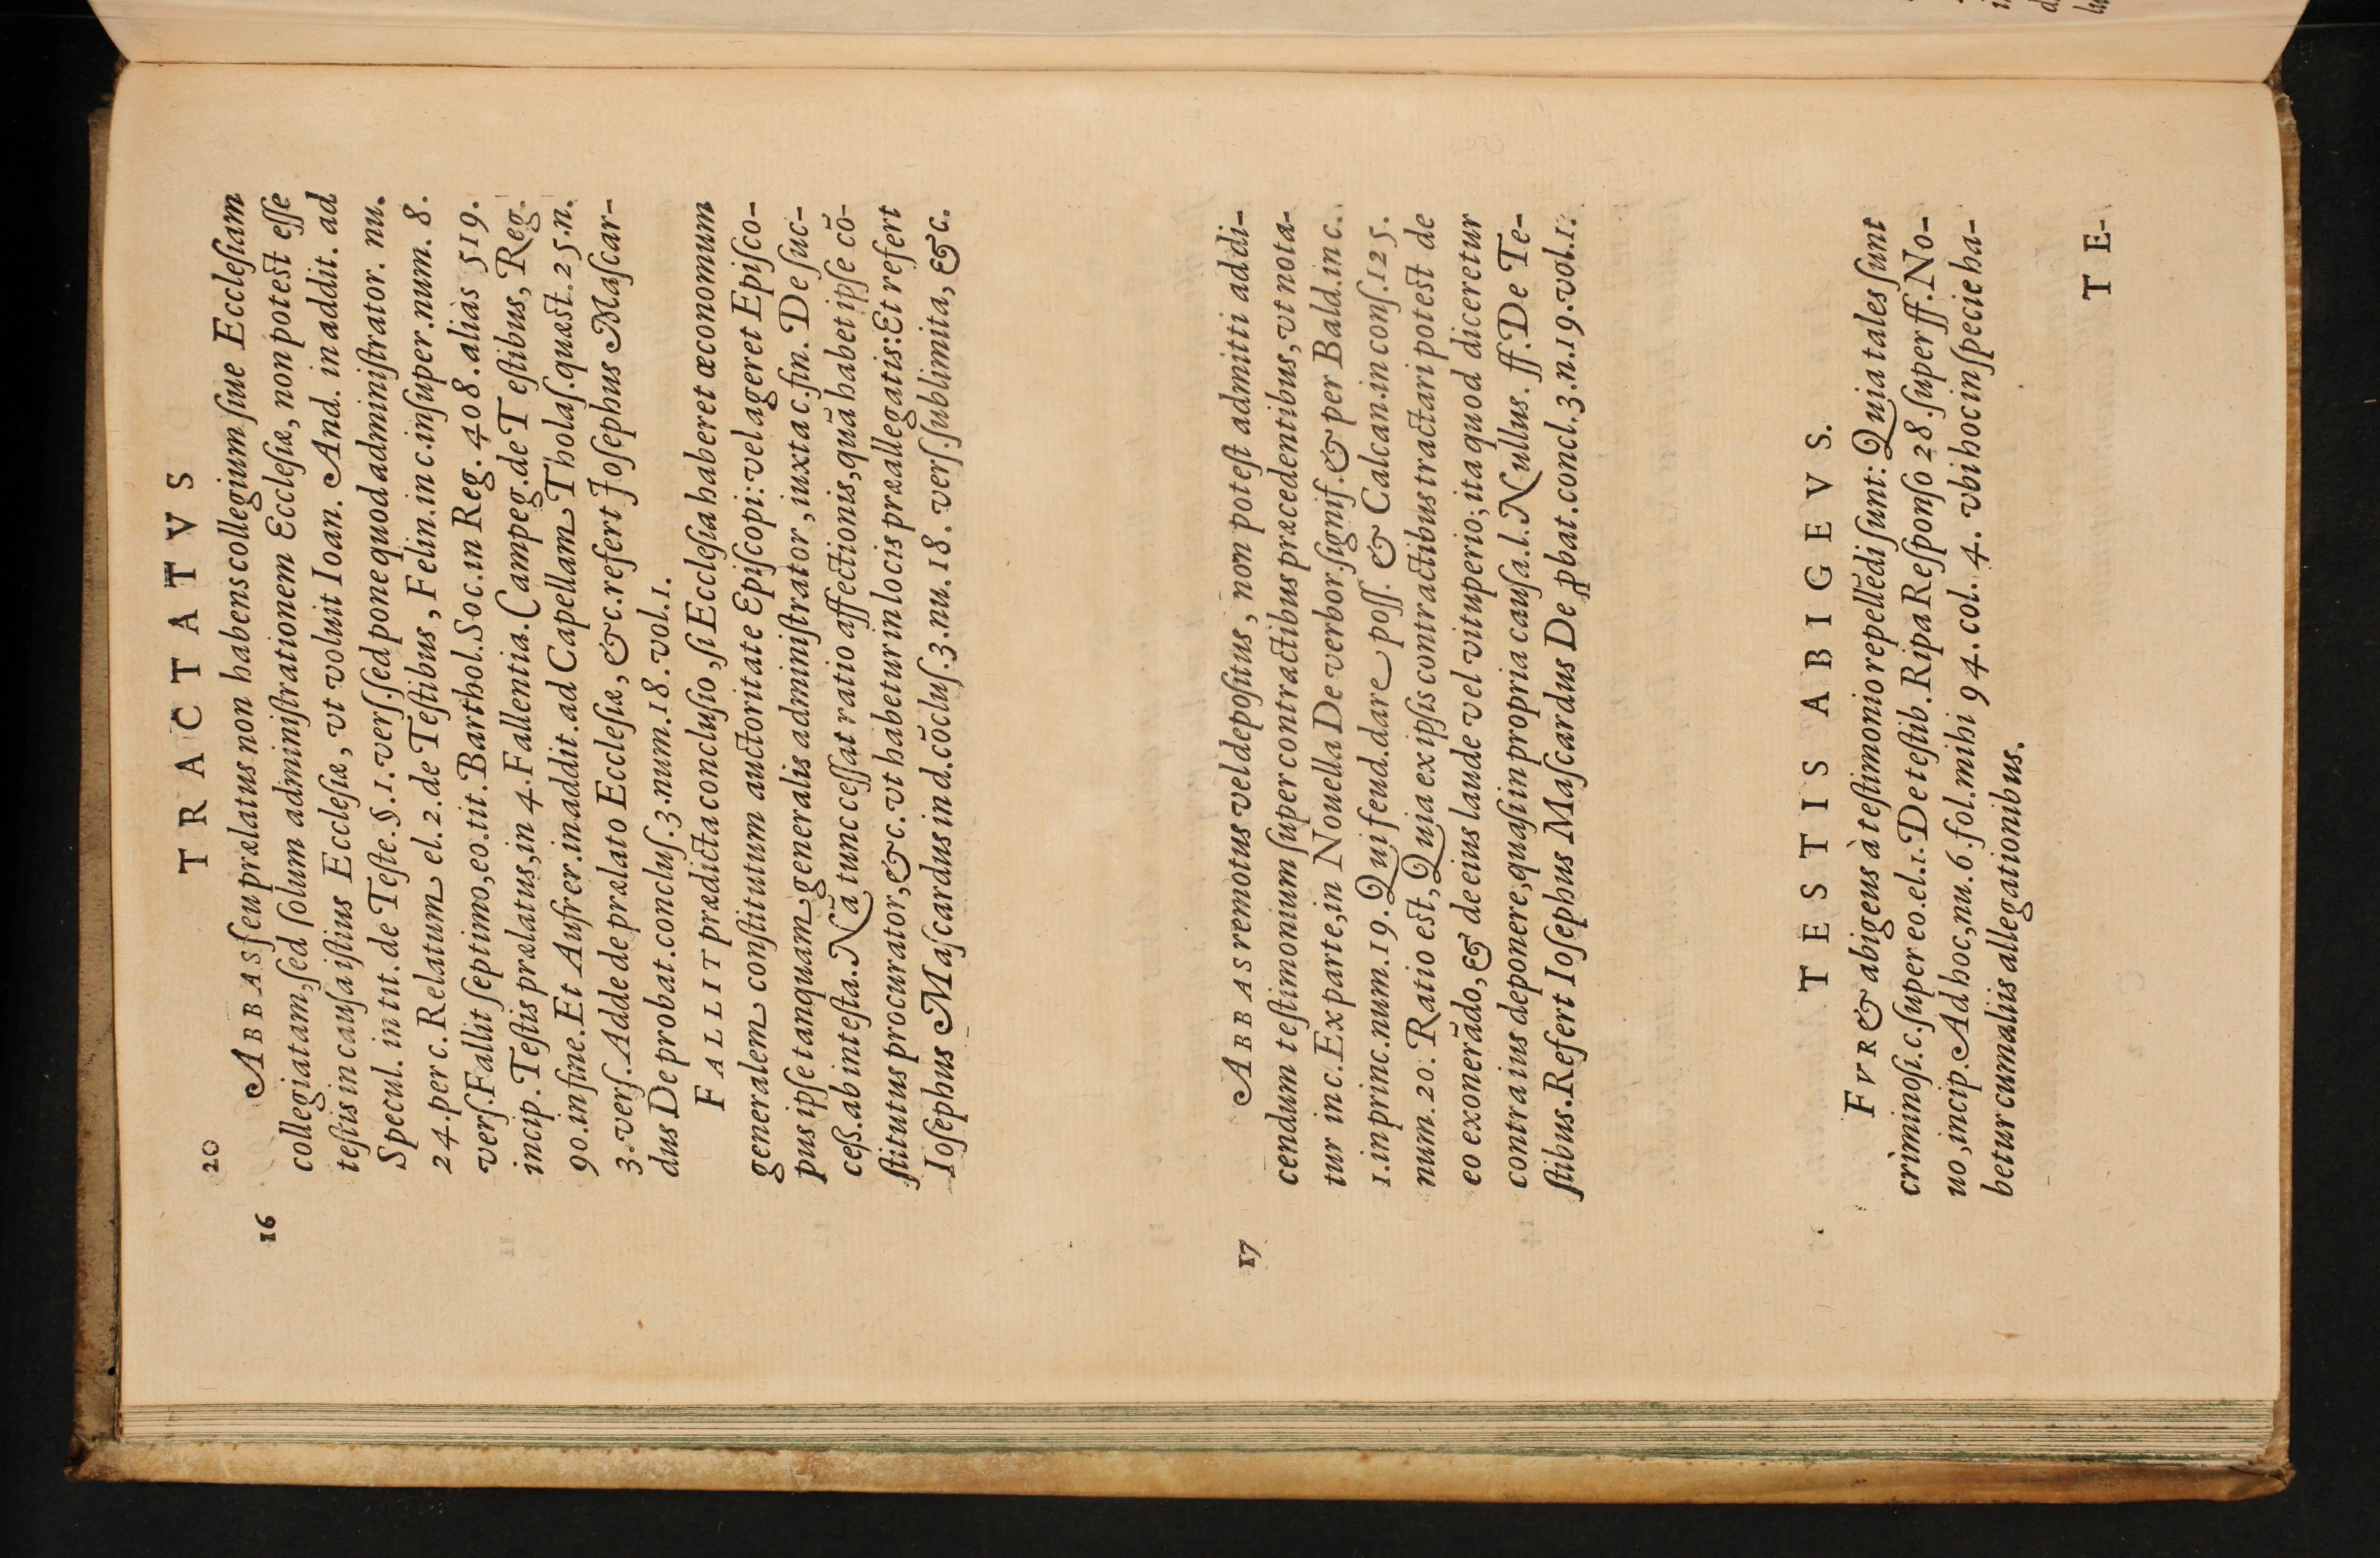 20 TRACTATVS
16 ABBAS seu prælatus non habens collegium siue Ecclesiam
collegiatam, sed solum administrationem Ecclesiæ, non potest esse
testis in causa istius Ecclesiæ, vt voluit Ioan. And. in addit. ad
Specul. in tit. de Teste. §. 1. vers. sed pone quod administrator. nu.
24. per c. Relatum el. 2. de Testibus, Felin. in c. insuper. num. 8.
vers. Fallit septimo, eo. tit. Barthol. Soc. in Reg. 408. aliàs 519.
incip. Testis prælatus, in 4. Fallentia. Campeg. de Testibus, Reg.
90. in fine. Et Aufrer. in addit. ad Capellam Tholas. quæst. 25. n.
3. vers. Adde de prælato Ecclesiæ, &c. refert Josephus Mascar-
dus De probat. conclus. 3. num. 18. vol. 1.
FALLIT prædicta conclusio, si Ecclesia haberet œconomum
generalem constitutum auctoritate Episcopi: vel ageret Episco-
pus ipse tanquam generalis administrator, iuxta c. fin. De suc-
cess. ab intesta. Nā tunc cessat ratio affectionis, quā habet ipse cō-
stitutus procurator, &c. vt habetur in locis præallegatis: Et refert
Iosephus Mascardus in d. cōclus. 3. nu. 18. vers. sublimita, &c.
17 ABBAS remotus vel depositus, non potest admitti addi-
cendum testimonium super contractibus præcedentibus, vt nota-
tur in c. Ex parte, in Nouella De verbor. signif. & per Bald. in c.
1. in princ. num. 19. Qui feud. dare poss. & Calcan. in cons. 125.
num. 20. Ratio est, Quia ex ipsis contractibus tractari potest de
eo exonerādo, & de eius laude vel vituperio; ita quod diceretur
contra ius deponere, quasi in propria causa. l. Nullus. ff. De Te-
stibus. Refert Iosephus Mascardus De ꝓbat. concl. 3. n. 19. vol. 1.
TESTIS ABIGEVS.
FVR & abigeus à testimonio repellēdi sunt: Quia tales sunt
criminosi. c. super eo. el. 1. De testib. Ripa Responso 28. super ff. No-
uo, incip. Ad hoc, nu. 6. fol. mihi 94. col. 4. vbi hoc in specie ha-
betur cum aliis allegationibus.
TE-